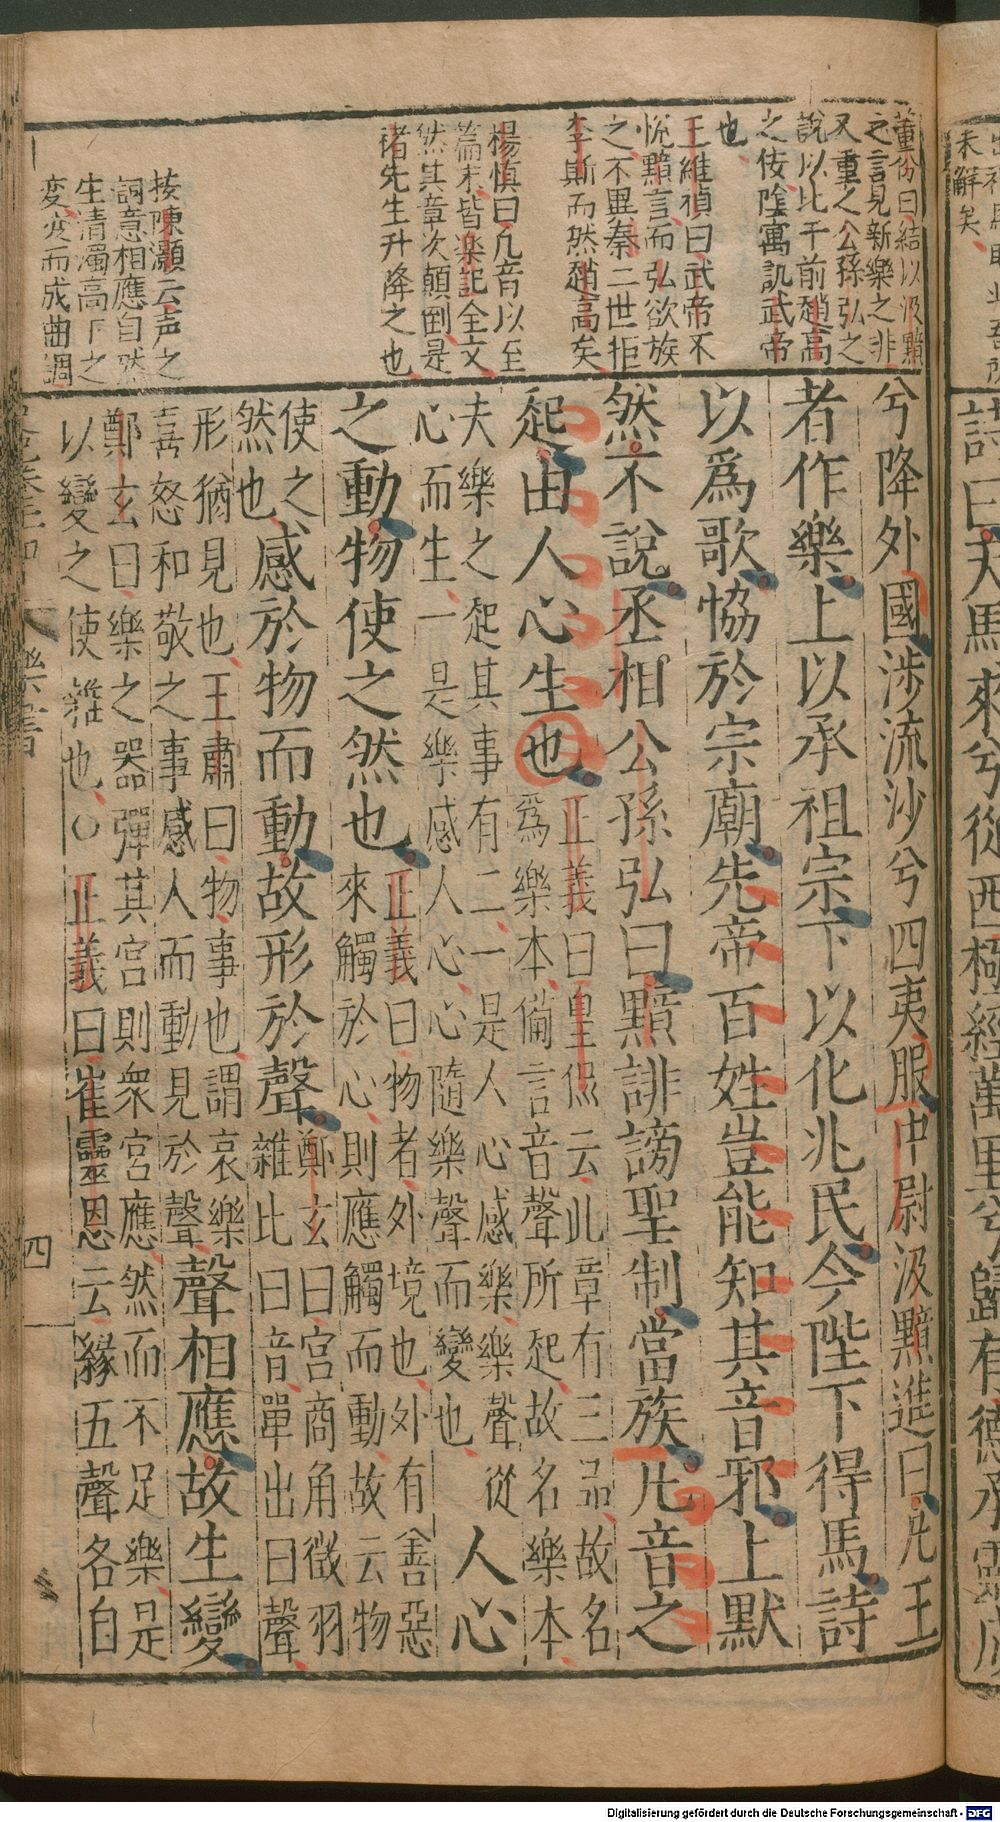 董份曰結以汲黯
之言見新樂之非
又重之公孫弘之
說以比于前趙高
之佞陰寓譏武帝
也
王維禎曰武帝不
悅黯言而弘欲族
之不異秦二世拒
李斯而然趙高矣
楊慎曰凡音以至
篇末皆樂記全文
然其章次顛倒是
褚先生升降之也
按陳灝云声之
詞意相應自然
生清濁高下之
変変而成曲調
兮降外國涉流沙兮四夷服中尉汲黯進曰凡王
者作樂上以承祖宗下以化兆民今陛下得馬詩
以爲歌協於宗廟先帝百姓豈能知其音邪上默
然不說丞相公孫弘曰黯誹謗聖制當族凡音之
起由人心生也
正義曰皇侃云此章有三品故名
爲樂本備言音聲所起故名樂本
夫樂之起其事有二一是人心感樂樂聲從
心而生一是樂感人心心隨樂聲而變也
人心
之動物使之然也
正義曰物者外境也外有善惡
來觸於心則應觸而動故云物
使之
然也
感於物而動故形於聲
鄭玄曰宮商角徵羽
雜比曰音單出曰聲
形猶見也王肅曰物事也謂哀樂
喜怒和敬之事感人而動見於聲
聲相應故生變
鄭玄曰樂之器彈其宮則衆宮應然而不足樂是
以變之使雜也○正義曰崔靈恩云緣五聲各自
樂書
四
詩曰天馬來兮從西極經萬里兮歸有德承靈
未解矣
Digitalisierung gefördert durch die Deutsche Forschungsgemeinschaft - DFG